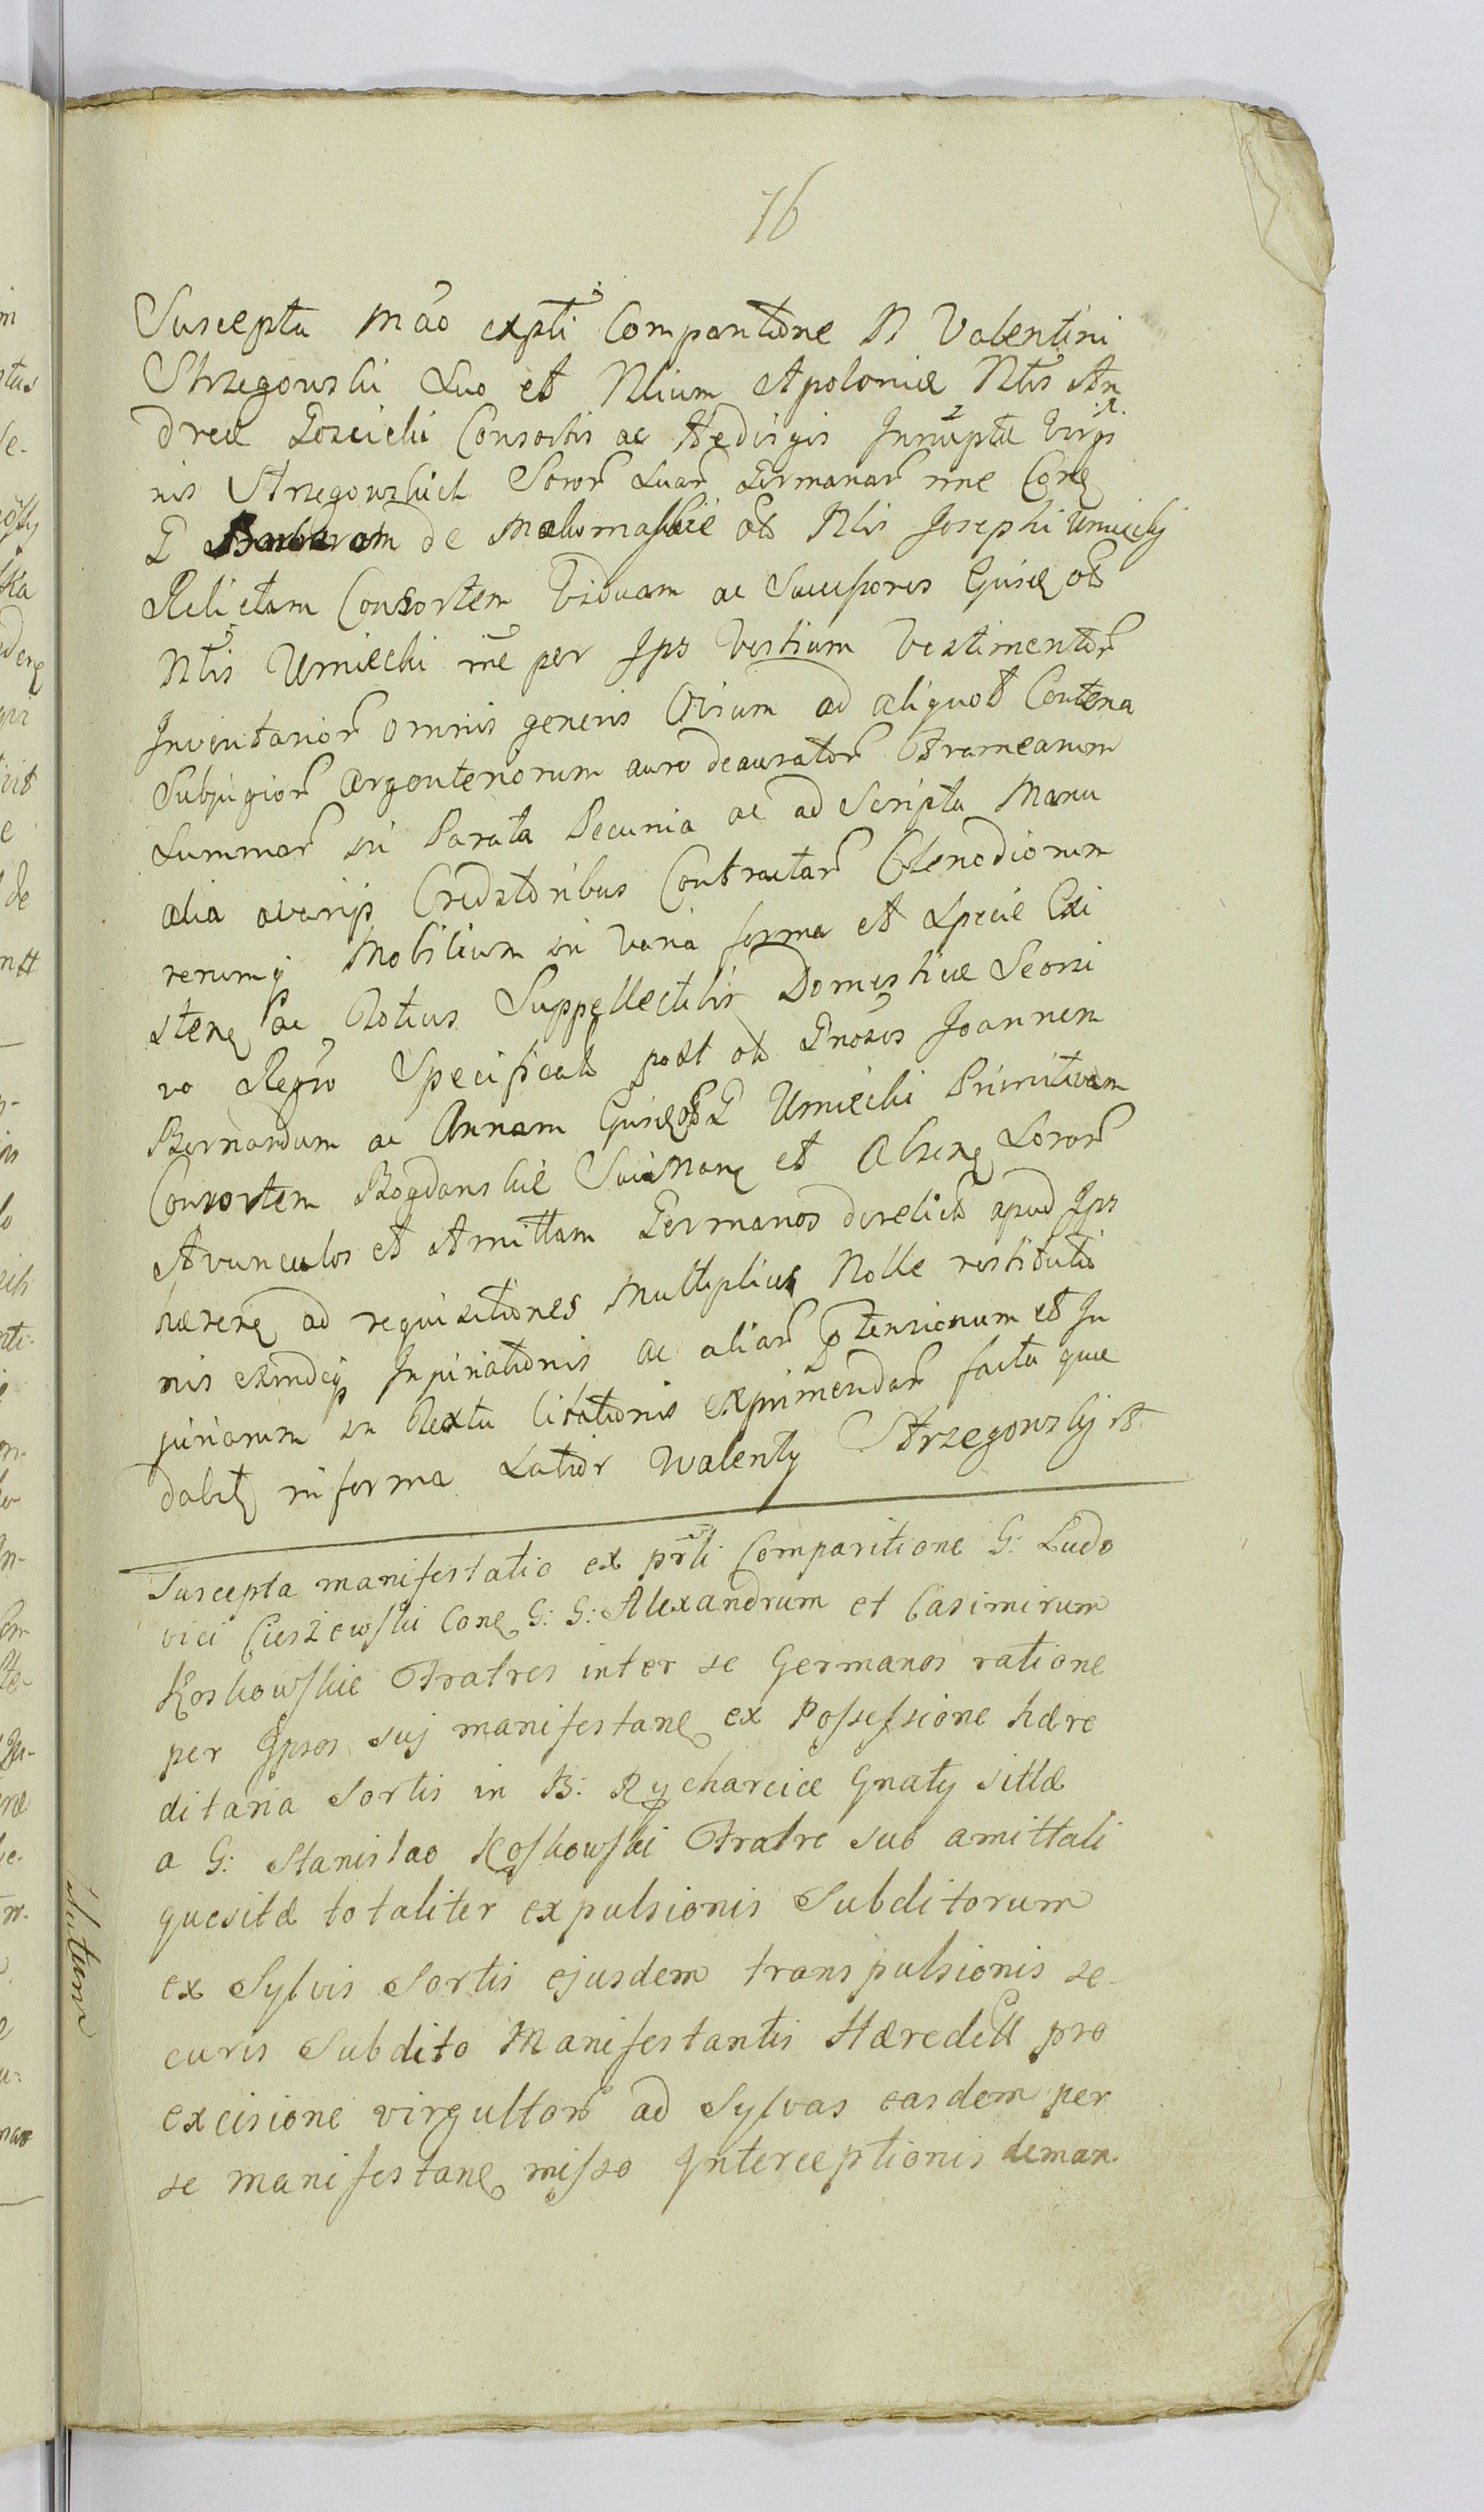 76
Suscepta Māo expti Comparitione N Valentini
Strzegowski Suo et Nlium Apoloniæ Nlis An
dreæ Goscicki Consortis ac Hedvigis Innuptæ Virgi
nis Strzegowskich Soror Suar Germanar nne Cone
G Barbaram de Makomaskie ol Nlis Josephi Umiecky
Relictam Consortem Viduam ac Successores Ejusd ol
Nlis Umiecki nne per Ips Vestium Vestimentor
Inventarior omnis generis Ovium ad aliquot Centena
Subjugior Argenteriorum auro deaurator Frameanum
Summar in Parata Pecunia ac ad Scripta Manu
alia a varijs Creditoribus Contractar Clenodiorum
rerumq Mobilium in varia forma et Specie Exi
sten ac Totius Suppellectilis Domesticæ Seorsi
vo Regro Specificat post ol Gnosos Joannem
Bernardum ac Annam Ejusd ol G Umiecki Primitivam
Consortem Bogdanskie Sui Man et Absen Soror
Avunculos et Amittam Germanos derelict apud Ips
hæren ad requisitiones Multiplices Nolle restitutio
nis eximdeq Injuriationis ac aliar Ptensionum et In
juriarum in Textu Citationis exprimendar facta quæ
dabit in forma Latior Walenty Strzegowsky
Suscepta manifestatio ex prti Comparitione G: Ludo
vici Cieszewski Cone G: G: Alexandrum et Casimirum
Koskowskie Fratres inter se Germanos ratione
per Ipsos suj manifestane ex Possessione hære
ditaria Sortis in B: Rycharcice Gnaty sittæ
a G: Stanislao Koskowski Fratre suo amittali
quesitæ totaliter expulsionis Subditorum
ex Sylvis Sortis ejusdem transpulsionis se-
curis Subdito Manifestantis Hæreditt pro
excisione virgultor ad Sylvas easdem per
se manifestane misso Interceptionis deman